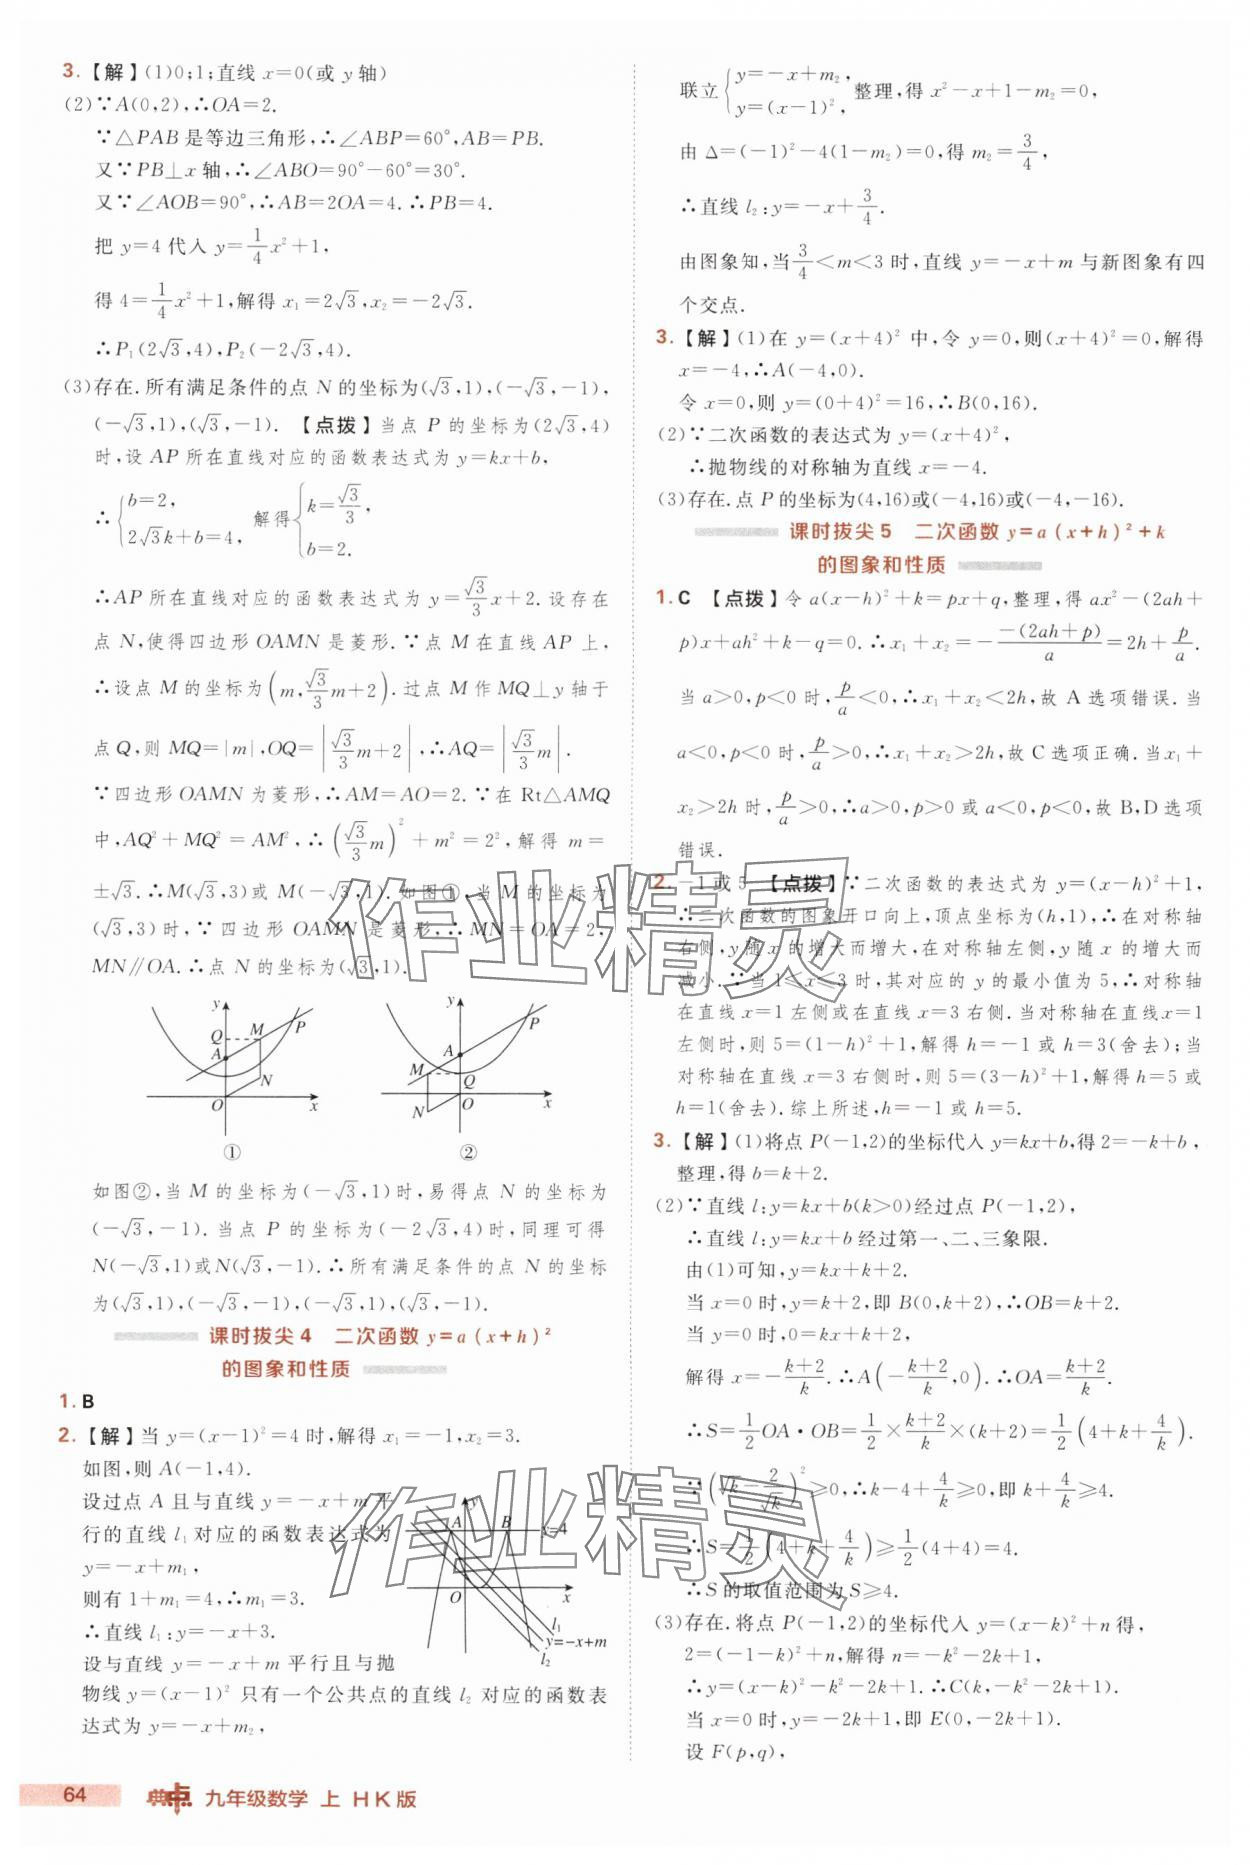 3.【解】(1)0;1;直线 x=0(或 y 轴)
(2)∵A(0,2),∴OA=2.
∵△PAB 是等边三角形,∴∠ABP=60°,AB=PB.
又∵PB⊥x 轴,∴∠ABO=90°-60°=30°.
又∵∠AOB=90°,∴AB=2OA=4.∴PB=4.
把 y=4 代入 y=1/4x²+1,
得 4=1/4x²+1,解得 x₁=2√3,x₂=-2√3.
∴P₁(2√3,4),P₂(-2√3,4).
(3)存在.所有满足条件的点 N 的坐标为(√3,1),(-√3,-1),
(-√3,1),(√3,-1).【点拨】当点 P 的坐标为(2√3,4)
时,设 AP 所在直线对应的函数表达式为 y=kx+b,
∴{b=2, 2√3k+b=4, 解得{k=√3/3, b=2.
∴AP 所在直线对应的函数表达式为 y=√3/3x+2.设存在
点 N,使得四边形 OAMN 是菱形.∵点 M 在直线 AP 上,
∴设点 M 的坐标为(m,√3/3m+2).过点 M 作 MQ⊥y 轴于
点 Q,则 MQ=|m|,OQ=|√3/3m+2|,∴AQ=|√3/3m|.
∵四边形 OAMN 为菱形,∴AM=AO=2.∵在 Rt△AMQ
中,AQ²+MQ²=AM²,∴(√3/3m)²+m²=2²,解得 m=
±√3.∴M(√3,3)或 M(-√3,1).如图①,当 M 的坐标为
(√3,3)时,∵四边形 OAMN 是菱形,∴MN=OA=2,
MN∥OA.∴点 N 的坐标为(√3,1).
y Q M P A N O x ①
y P A M Q N O x ②
如图②,当 M 的坐标为(-√3,1)时,易得点 N 的坐标为
(-√3,-1).当点 P 的坐标为(-2√3,4)时,同理可得
N(-√3,1)或N(√3,-1).∴所有满足条件的点 N 的坐标
为(√3,1),(-√3,-1),(-√3,1),(√3,-1).
课时拔尖 4 二次函数 y=a(x+h)²
的图象和性质
1.B
2.【解】当 y=(x-1)²=4 时,解得 x₁=-1,x₂=3.
如图,则 A(-1,4).
设过点 A 且与直线 y=-x+m 平
行的直线 l₁ 对应的函数表达式为
y=-x+m₁,
则有 1+m₁=4,∴m₁=3.
∴直线 l₁:y=-x+3.
设与直线 y=-x+m 平行且与抛
物线 y=(x-1)² 只有一个公共点的直线 l₂ 对应的函数表
达式为 y=-x+m₂,
y A B y=4 O x l₁ y=-x+m l₂
联立{y=-x+m₂, y=(x-1)², 整理,得 x²-x+1-m₂=0,
由 Δ=(-1)²-4(1-m₂)=0,得 m₂=3/4,
∴直线 l₂:y=-x+3/4.
由图象知,当3/4<m<3 时,直线 y=-x+m 与新图象有四
个交点.
3.【解】(1)在 y=(x+4)² 中,令 y=0,则(x+4)²=0,解得
x=-4,∴A(-4,0).
令 x=0,则 y=(0+4)²=16,∴B(0,16).
(2)∵二次函数的表达式为 y=(x+4)²,
∴抛物线的对称轴为直线 x=-4.
(3)存在.点 P 的坐标为(4,16)或(-4,16)或(-4,-16).
课时拔尖 5 二次函数 y=a(x+h)²+k
的图象和性质
1.C 【点拨】令 a(x-h)²+k=px+q,整理,得 ax²-(2ah+
p)x+ah²+k-q=0.∴x₁+x₂=-(-(2ah+p))/a=2h+p/a.
当 a>0,p<0 时,p/a<0,∴x₁+x₂<2h,故 A 选项错误.当
a<0,p<0 时,p/a>0,∴x₁+x₂>2h,故 C 选项正确.当x₁+
x₂>2h 时,p/a>0,∴a>0,p>0 或 a<0,p<0,故 B,D 选项
错误.
2.-1或5 【点拨】∵二次函数的表达式为 y=(x-h)²+1,
∴二次函数的图象开口向上,顶点坐标为(h,1),∴在对称轴
右侧,y 随 x 的增大而增大,在对称轴左侧,y 随 x 的增大而
减小.∵当 1≤x≤3 时,其对应的 y 的最小值为 5,∴对称轴
在直线 x=1 左侧或在直线 x=3 右侧.当对称轴在直线x=1
左侧时,则 5=(1-h)²+1,解得 h=-1 或 h=3(舍去);当
对称轴在直线 x=3 右侧时,则 5=(3-h)²+1,解得 h=5 或
h=1(舍去).综上所述,h=-1 或 h=5.
3.【解】(1)将点 P(-1,2)的坐标代入 y=kx+b,得 2=-k+b,
整理,得 b=k+2.
(2)∵直线 l:y=kx+b(k>0)经过点 P(-1,2),
∴直线 l:y=kx+b 经过第一、二、三象限.
由(1)可知,y=kx+k+2.
当 x=0 时,y=k+2,即 B(0,k+2),∴OB=k+2.
当 y=0 时,0=kx+k+2,
解得 x=-(k+2)/k.∴A(-(k+2)/k,0).∴OA=(k+2)/k.
∴S=1/2OA·OB=1/2×(k+2)/k×(k+2)=1/2(4+k+4/k).
∵(√k-2/√k)²≥0,∴k-4+4/k≥0,即 k+4/k≥4.
∴S=1/2(4+k+4/k)≥1/2(4+4)=4.
∴S 的取值范围为 S≥4.
(3)存在.将点 P(-1,2)的坐标代入 y=(x-k)²+n 得,
2=(-1-k)²+n,解得 n=-k²-2k+1,
∴y=(x-k)²-k²-2k+1.∴C(k,-k²-2k+1).
当 x=0 时,y=-2k+1,即 E(0,-2k+1).
设 F(p,q),
作业精灵
作业精灵
64 典点 九年级数学 上 HK版